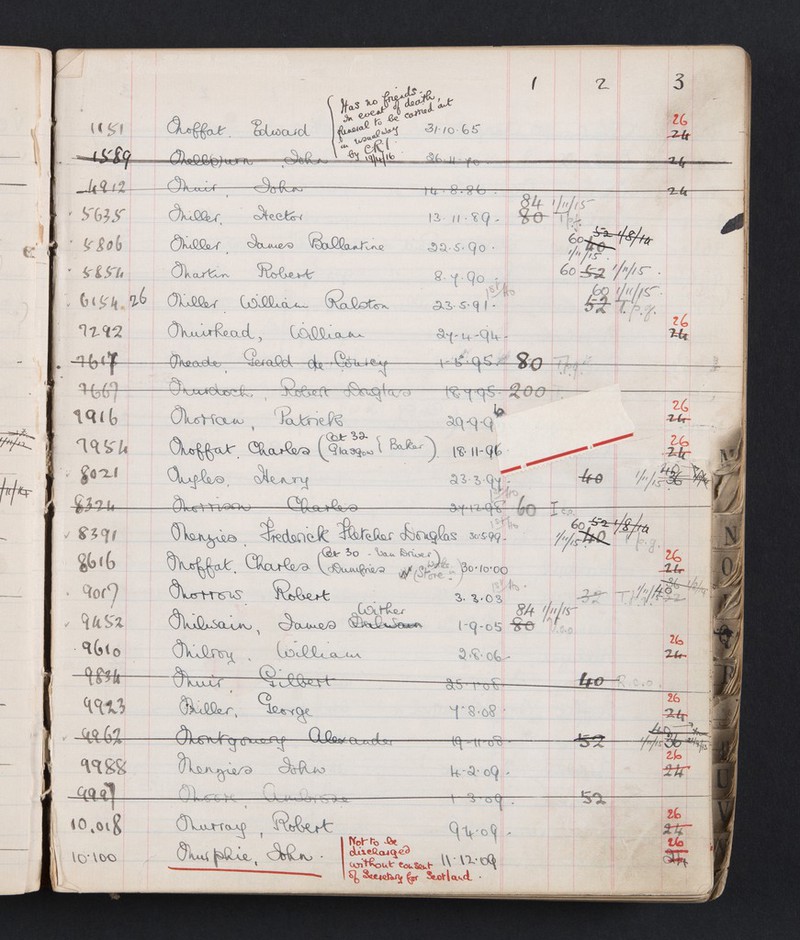 1 2 3
1151 Moffat, Edward Has no friends. in event of death, funeral to be carried out in usual way by CRI. 19/11/16 31.10.65 26 24
1589 John 24
4912 Muir, John 14.8.86 24
5635 Miller, Hector 13.11.89. 84 1/11/15 80
5806 Miller, James Ballantine 22.5.90. 60 52 1/8/14 40 1/11/15.
5854 Martin Robert 8.7.90 60 52 1/11/15.
6154.26 Miller William Ralston 23.5.91. 60 1/11/15. 52 T.p.g.
7292 Muirhead, William 27.4.94. 26 24
7617 Meade, Gerald de Courcy 1.5.95. 80
7667 Murdoch, Robert Douglas 18.7.95. 200
7916 Patrick 29.9.96 26 24
7954 Moffat, Charles (Cat 32 Glasgow Baker) 18.11.96 26 24
8021 Myles, Henry 23.3.97. 40 1/11/15 36
8324 Morrison Charles 27.12.98 60
8391 Menzies, Frederick Fletcher Douglas 30.5.99. 60 52 1/8/14 1/11/15. 40
8616 Moffat, Charles (Cat 30 - Van Driver Dumfries Store) 30.10.00 26 24
9017 Morrow Robert 3.3.03 32
9452 Milwain, James Wither 1.9.05 84 1/11/15 80
9610 Milroy, William 2.8.06. 26 24
9834 Muir, Gilbert 25.1.08 40 R.o.o.
9923 Miller, George 7.8.08 26 24
9962 Montgomery Alexander 19.11.08 52 1/11/15 36
9988 Menzies John 4.2.09. 26 24
9997 Moore, Ambrose 1.3.09. 52
10.018 Murray, Robert 9.4.09. 26 24
10.100 Murphie, John. Not to be discharged without consent of Secretary for Scotland. 11.12.09 26 24